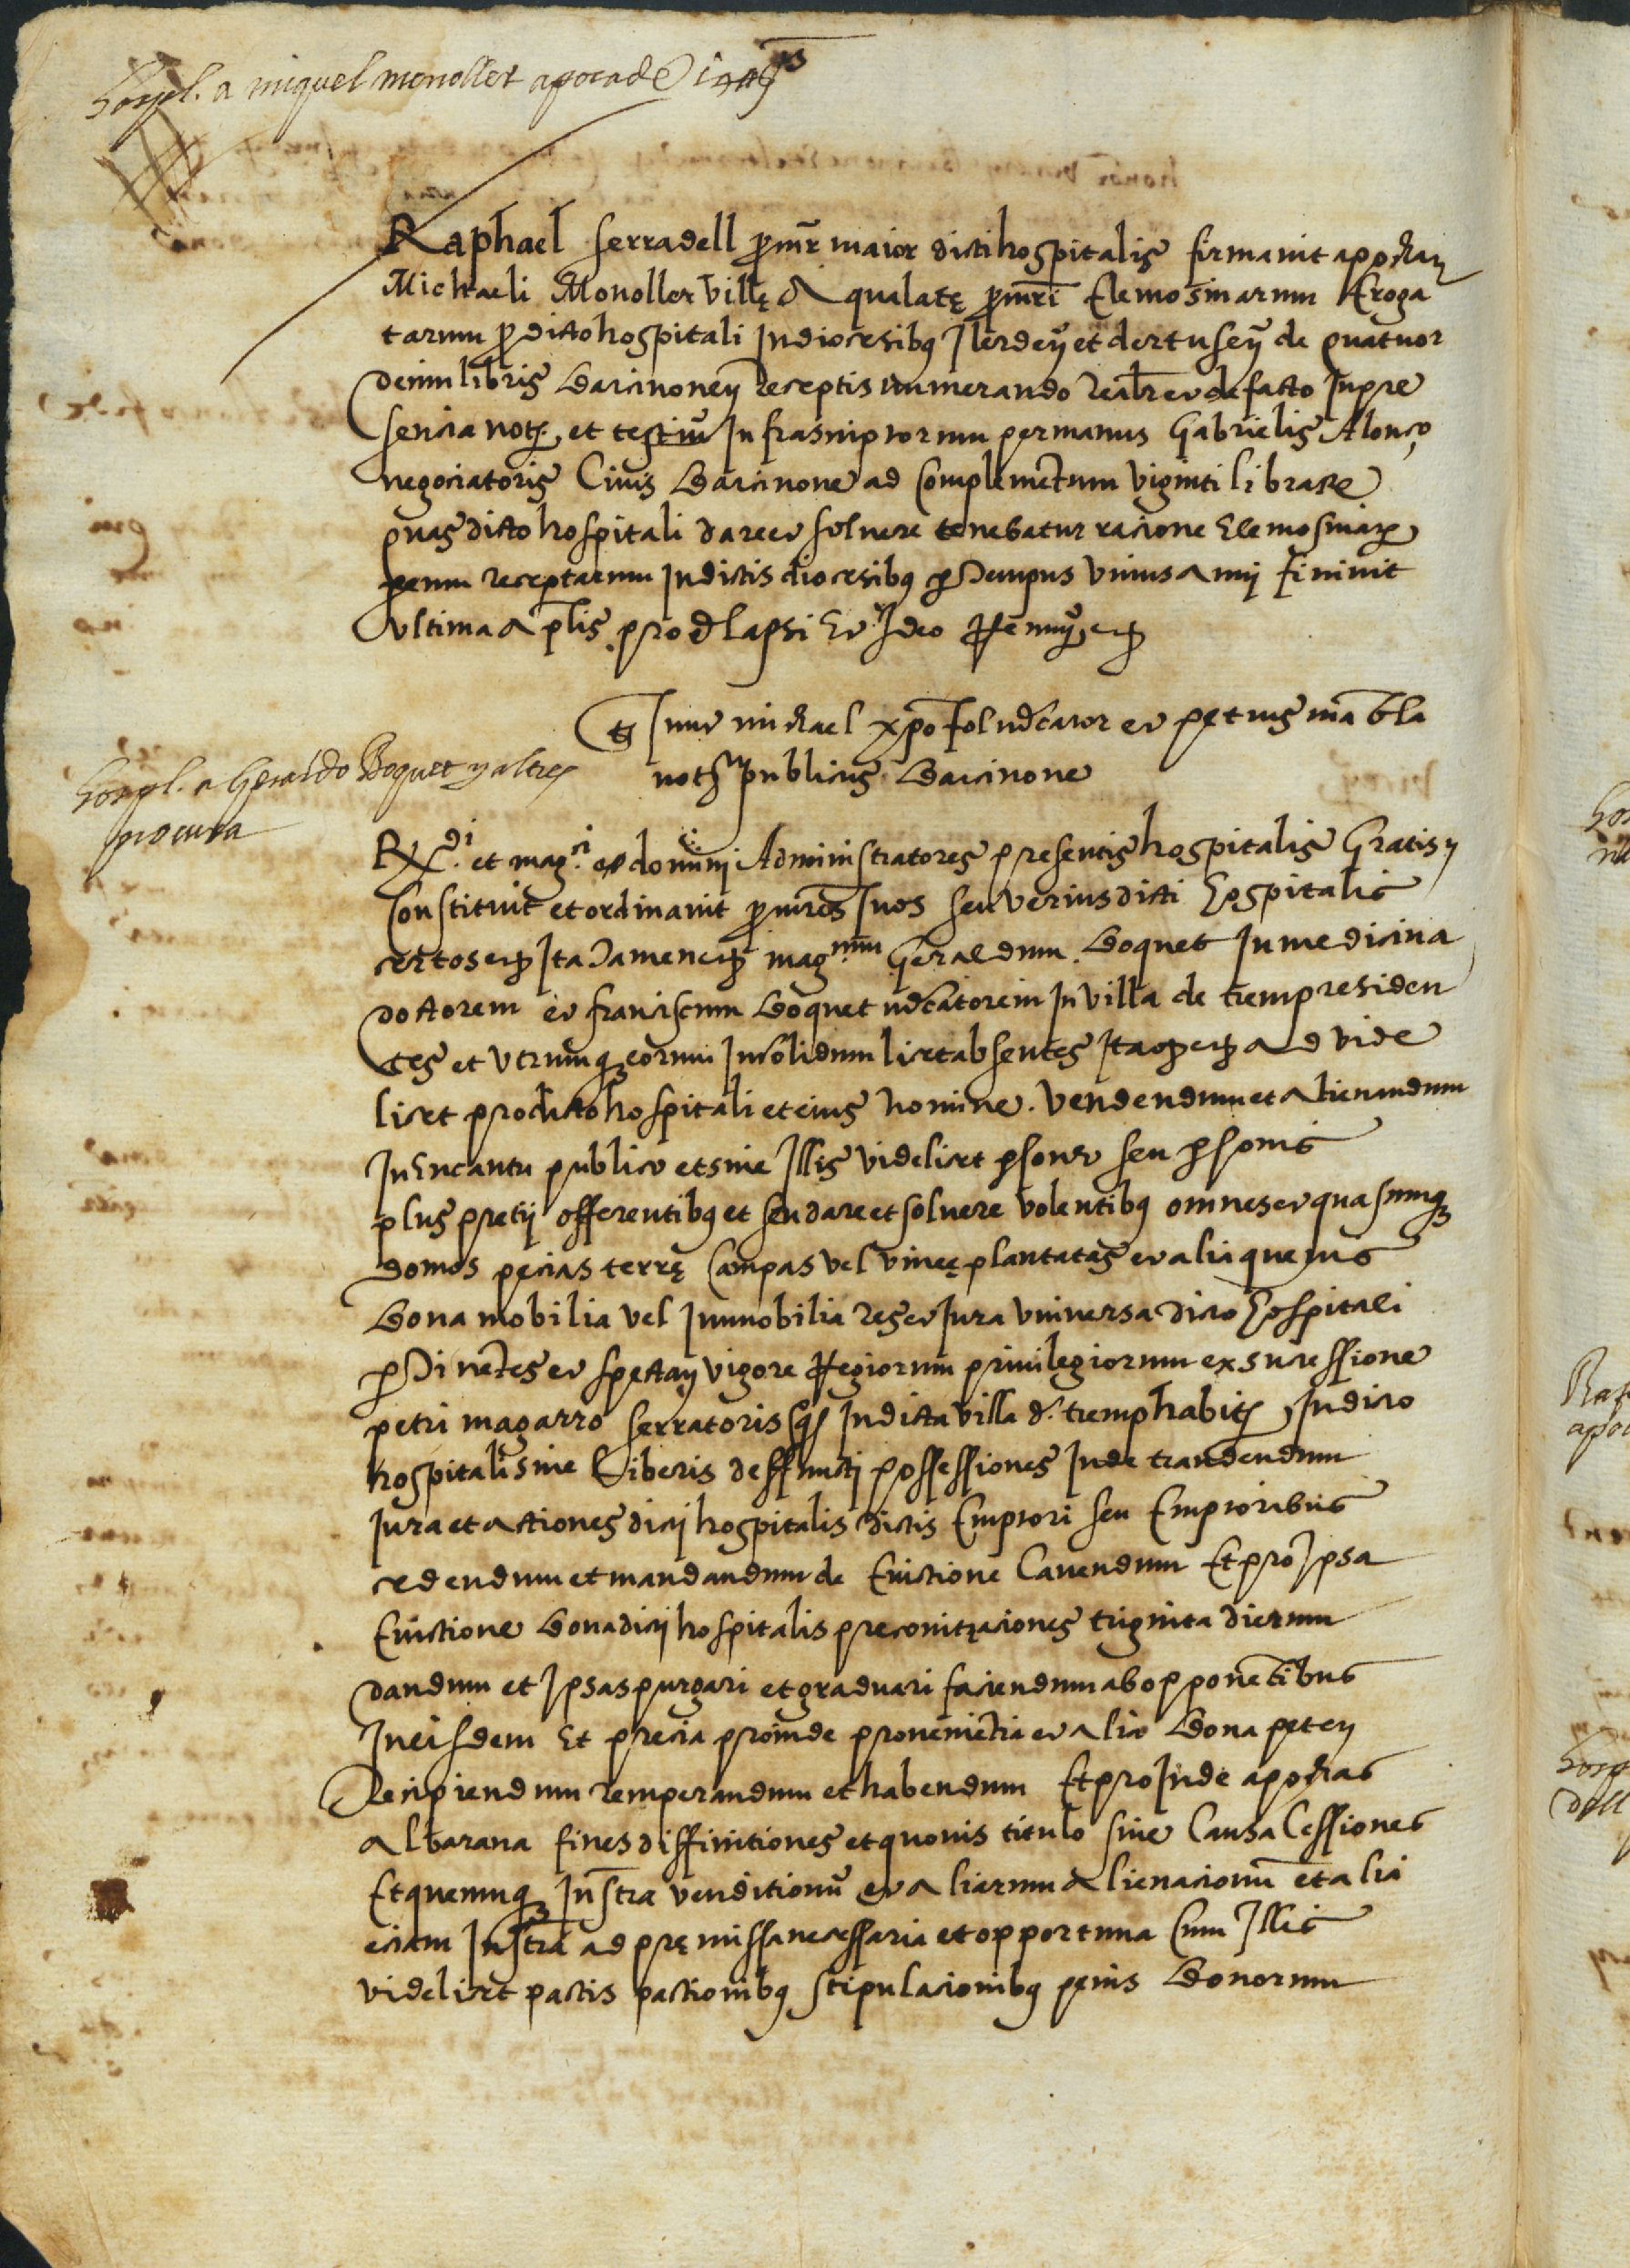 Hospl. a miquel monoller apoca de
Raphael serradell p̄mr̄ maior dicti hospitalis firmavit apocham
Michaeli Monoller villę de aqualatę p̄mr̄i Elemosinarum Eroga
tarum p dicto hospitali In diocesibus Ilerdeñ et dertuseñ de quatuor
decim libris Barcinoneñ receptis numerando realr̄ et de facto In pre
sencia notę et testiū Infrascriptorum per manus Gabrielis Alonço
negociatoris Civis Barcinone ad complemētum viginti librarę
quas dicto hospitali dare et solvere tenebatur racione Elemosinarę
receptarum In dictis diocesibus p tempus unius anni finivit
ultima aplis prox lapsi Et Ideo Renunę etcę
tę sunt michael xpo fol mdcator et petrus mābla
notę publicus Barcinone
Hospl. a Geraldo Boquet y altres
procura
Rx.di et mag.ci dominj Administratores presentis hospitalis Gratis
Constituit et ordinavit p̄mr̄es suos seu verius dicti Hospitalis
certos etcę Ita tamen etcę mag.cum Geraldum Boquet In medicina
doctorem et franciscum Boquet mdcatorem In villa de tremp residen
tes et utrumqę eorum Insolidum licet absentes Ita qę etcę Ad vide
licet pro dicto hospitali et eius nomine. vendendum et alienandum
In Encantu publico et sine Illis videlicet psone seu psonis
plus pretij offerentibus et seu dare et solvere volentibus omnes et quascumqę
domos pecias terrę Campas vel vineę plantatas et alia quevis
Bona mobilia vel Inmobilia res et Jura universa dicto Hospitali
ptinētes et spectañ vigore Regiorum privilegiorum ex sucessione
petri magarro serratoris In dicta villa d. tremp habitę In dicto
hospitali sine Liberis deffuncti possessiones Inde tradendum
Jura et actiones dicti hospitalis dictis Emptori seu Emptoribus
cedendum et mandandum de Evictione Cavendum Et pro Ipsa
Evictione Bona dicti hospitalis preconitzaciones triginta dierum
dandum et Ipsas purgari et graduari faciendum ab opponētibus
In eisdem Et precia proinde provenientia et alia Bona peteñ
Recipiendum Remperandum et habendum Et pro Inde apochas
albarana fines diffinitiones et quovis titulo sive Causa Cessiones
Et quecumqę Instr̄a venditionū et aliarum alienacionū et alia
eciam Instr̄a ad pręmissa necessaria et opportuna Cum Illis
videlicet pactis pactionibus stipulacionibus penis Bonorum